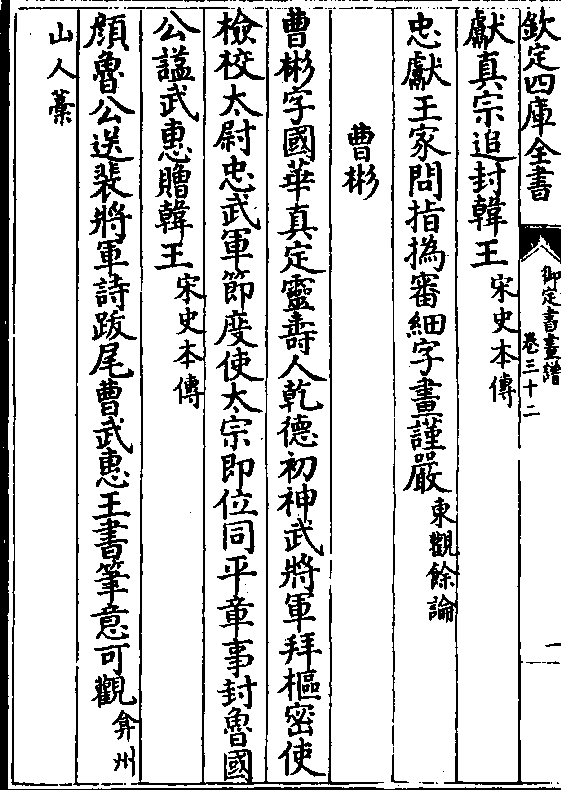 欽定四庫全書
御定書畫譜
卷三十二
一
獻真宗追封韓王宋史本傳
忠獻王家問指撝審細字畫謹嚴東觀餘論
曹彬
曹彬字國華真定靈壽人乾德初神武將軍拜樞密使
檢校太尉忠武軍節度使太宗即位同平章事封魯國
公諡武惠贈韓王宋史本傳
顔魯公送裴將軍詩跋尾曹武惠王書筆意可觀弇州
山人藳